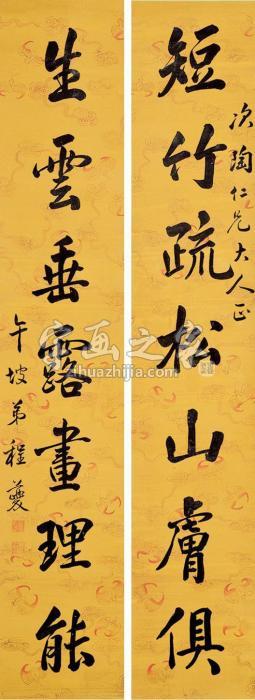 短竹疏松山膚俱
次陶仁兄大人正
生雲垂露畫理能
午坡弟程夔
字画之家
zihuazhijia.com